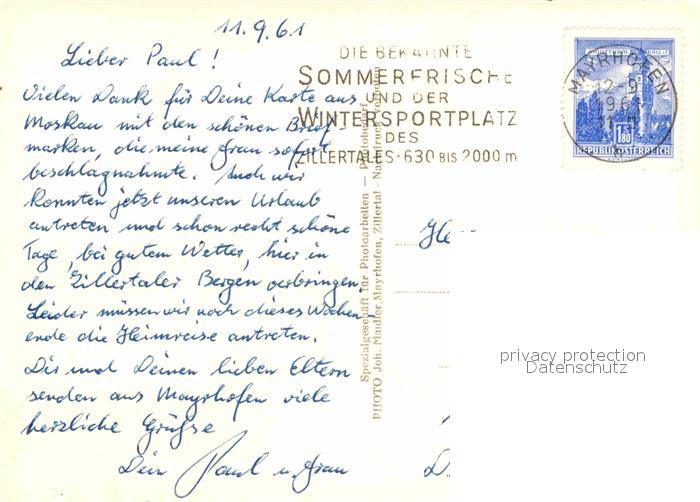 11.9.61
Lieber Paul!
Vielen Dank für Deine Karte aus
Moskau mit den schönen Brief-
marken, die meine Frau sofort
beschlagnahmte. Auch wir
konnten jetzt unseren Urlaub
antreten und schon recht schöne
Tage, bei gutem Wetter, hier in
den Zillertaler Bergen verbringen.
Leider müssen wir noch dieses Wochen-
ende die Heimreise antreten.
Dir und Deinen lieben Eltern
senden aus Mayrhofen viele
herzliche Grüsse
Dein Paul u. Frau
DIE BEKANNTE
SOMMERFRISCHE
UND DER
WINTERSPORTPLATZ
DES
ZILLERTALES·630 BIS 2000 m
MAYRHOFEN
12-9
1961
11
1.80
REPUBLIK ÖSTERREICH
Spezialgeschäft für Photoarbeiten
PHOTO Joh. Maidler, Mayrhofen, Zillertal
He
privacy protection
Datenschutz